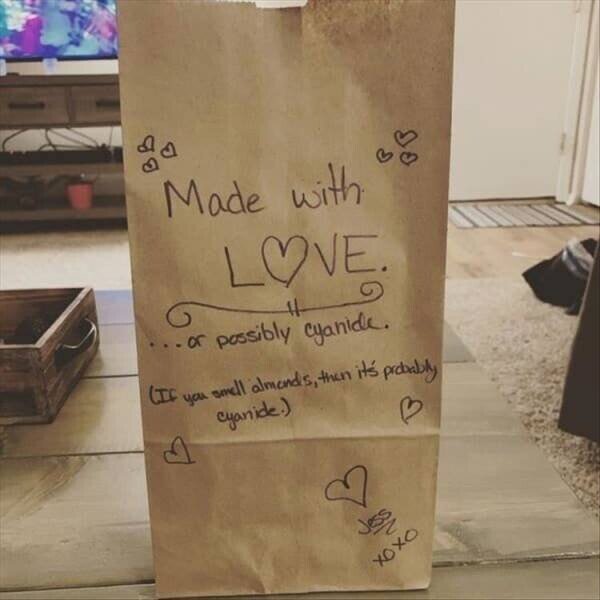 Made with
LOVE.
...or possibly cyanide.
(If you smell almonds, then it's probably
cyanide.)
Jess
xoxo